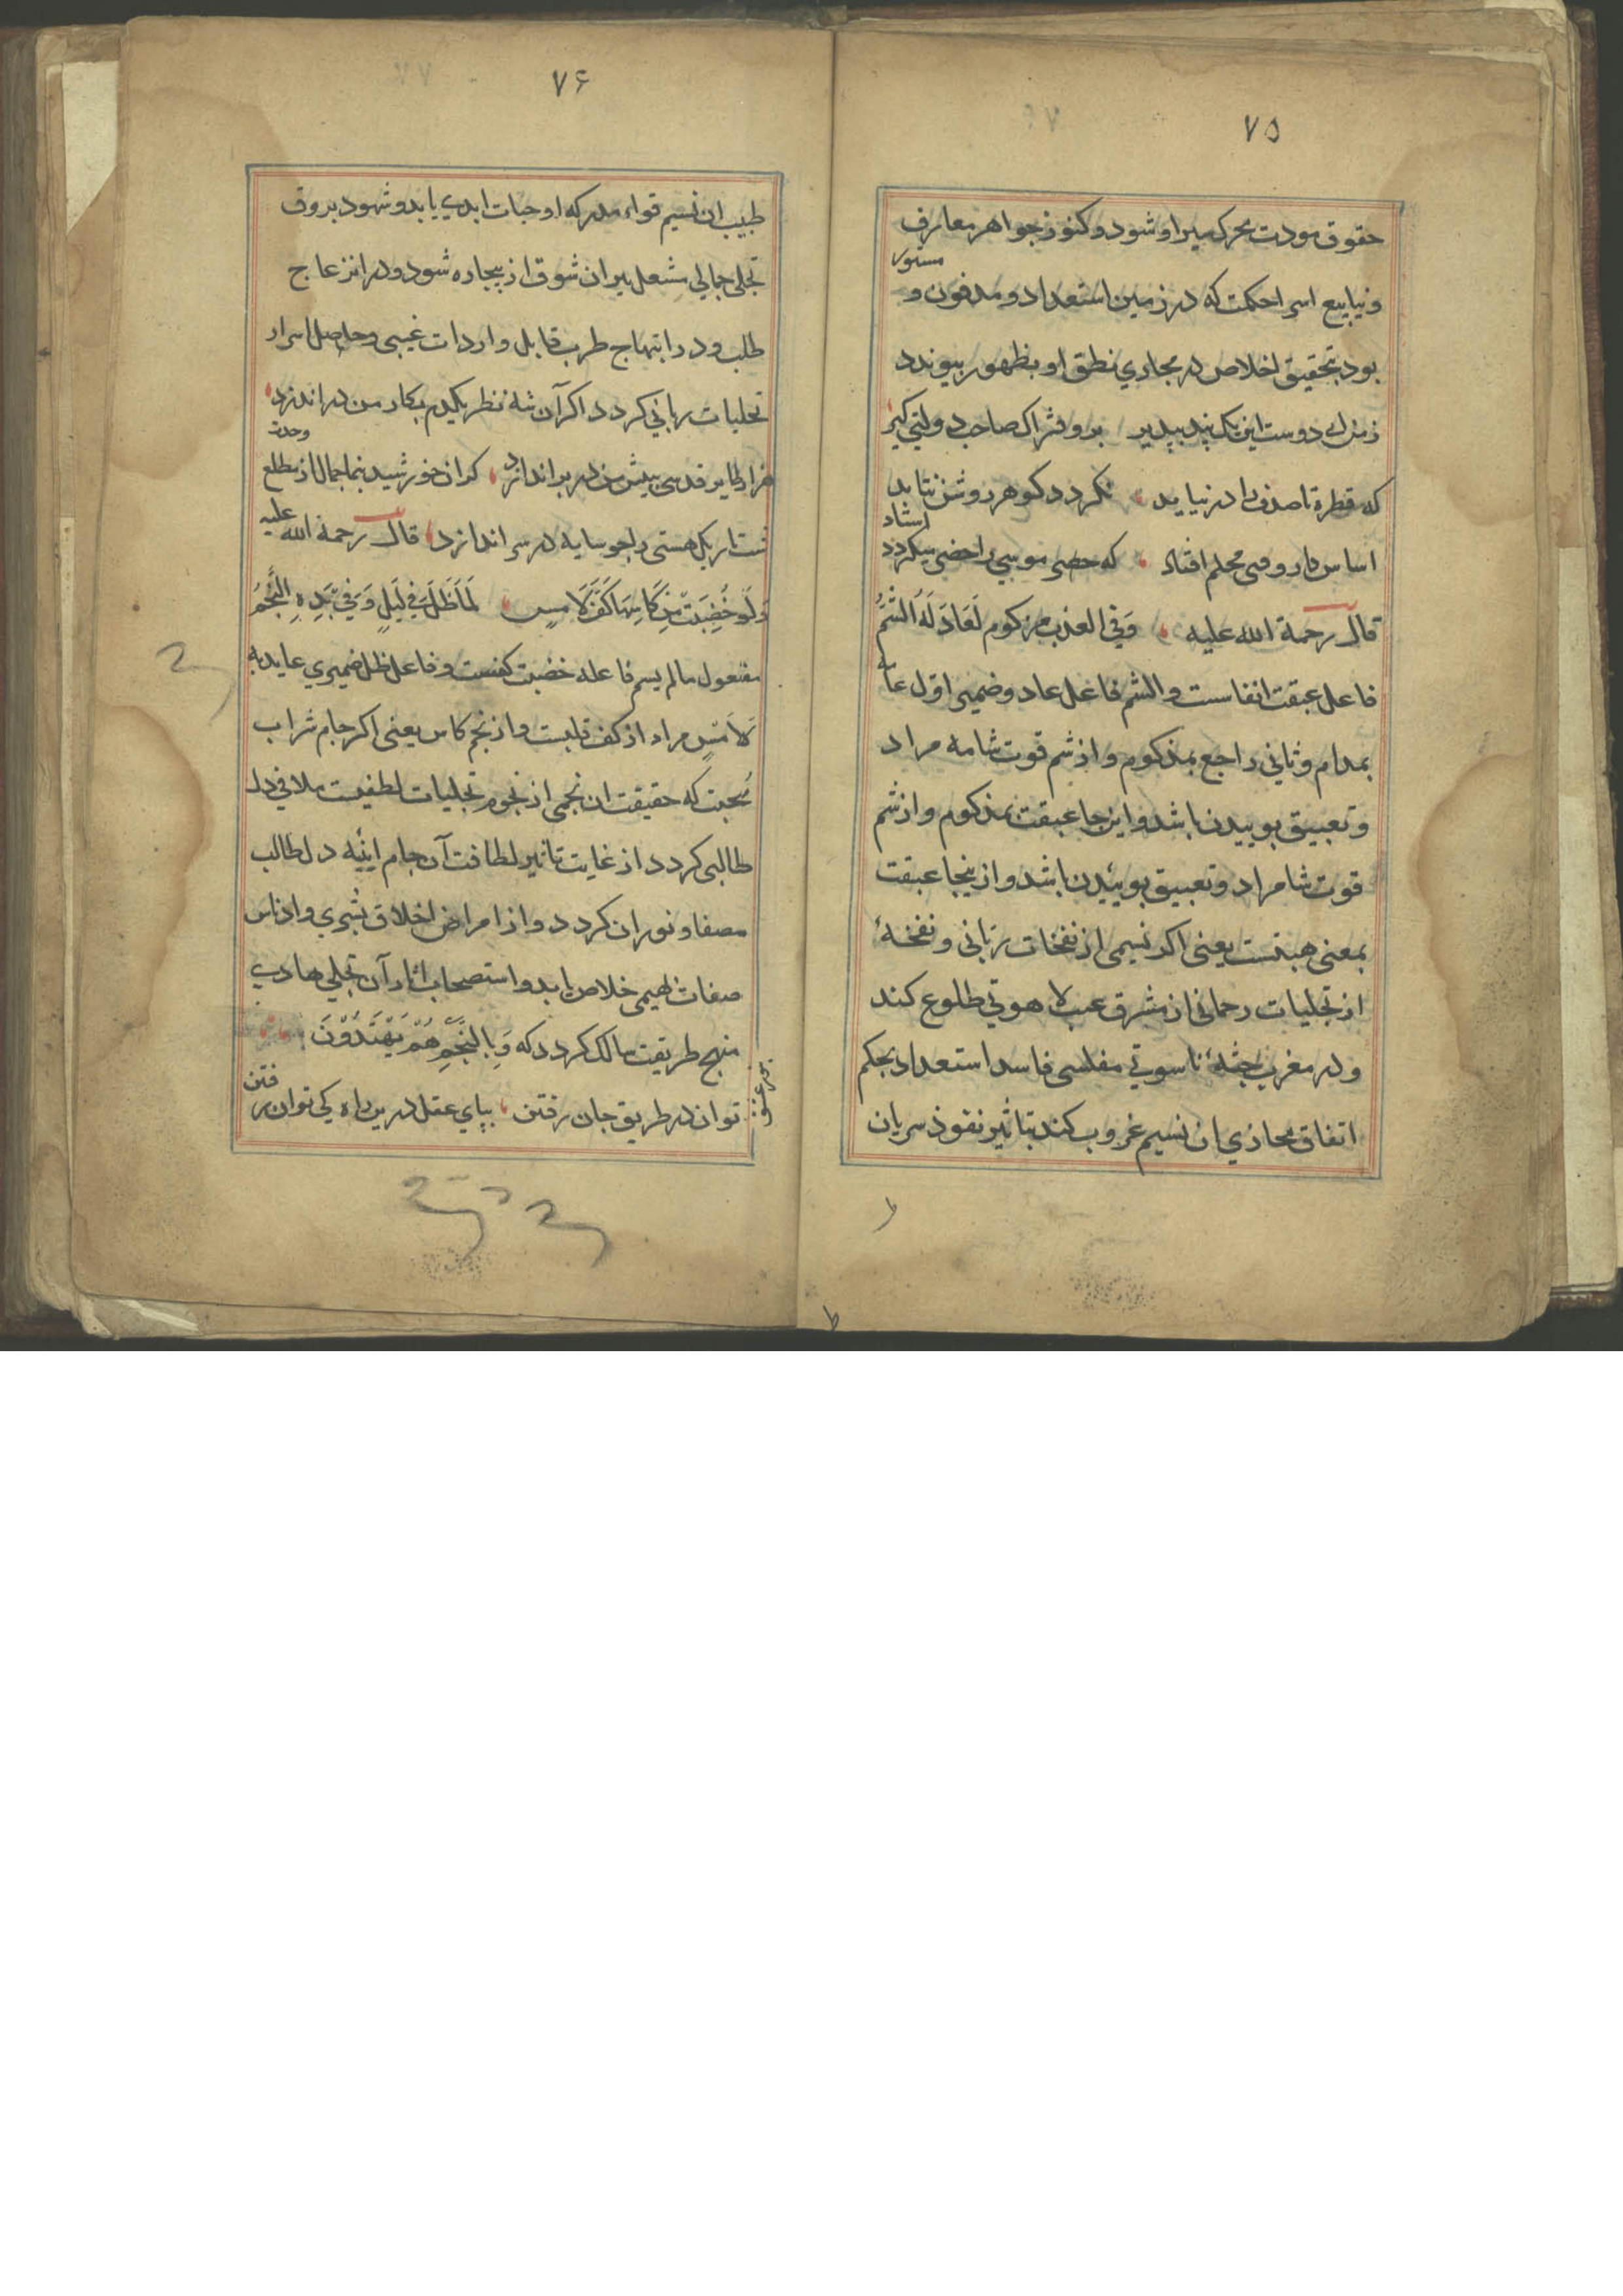 ۷۵
حقوق مودت محرک میراو شود و کنوز جواهر معارف
و ینابیع اسرا حکمت که در زمین استعداد و مدفون و مستور
بود بتحقیق اخلاص در مجاری نطق او بظهور بپیوندد
زمن ای دوست این یک پند بپذیر برو فتراک صاحب دولتی گیر
که قطره تا صدف را در نیابد نکردد کوهر روشن نتابد
اساس کار وقتی محکم افتاد که خضر موسی را خضر میکردد استاد
قال رحمة الله علیه وَفِی الغرب مزکوم لَعَادَ لَهُ الشَّمُّ
فاعل عبقت انفاسست و الشم فاعل عاد و ضمیر اول عاید
بمدام و ثانی راجع بمذکوم و از شم قوت شامه مراد
و تعبیق بوییدن باشد و این جا عبقت بمذکوم و از شم
قوت شامراد و تعبیق بوییدن باشد و از ینجا عبقت
بمعنی هبتست یعنی اکر نسیمی از نفخات ربانی و نفخهٔ
از تجلیات رحمانی از مشرق عیب لاهوتی طلوع کند
و در مغرب جثهٔ ناسوتی مفلسی فاسد استعداد بحکم
اتفاق محاذی ان نسیم غروب کند بتاثیر نفوذ سریان
۷۶
طیب ان نسیم قواء مدرکه او حیات ابدی یابد و شهود بروق
تجلی جمالی مشعل نیران شوق از بیچاره شود و در انزعاج
طلب و در ابتهاج طرب قابل واردات غیبی و حاصل اسرار
تجلیات ربانی کردد اکر آن شه نظر یکدم بکار من در اندازد
هزاران طایر قدسی بپیش من در پر اندازد کر ان خورشید بنما جمال از مطلع وحدت
شب تاریک هستی را چو سایه در سر اندازد قال رحمة الله علیه
وَلَو خُضِبَت مِن کَاسِهَا کَفُّ لَامِسٍ لَمَا ظَلَّ فِی لَیلٍ وَفِی یَدِهِ النَّجمُ
مفعول مالم یسم فاعله خضبت کفست و فاعل ظل ضمیری عاید به
لَامِسٍ مراد از کف قلبست و از نجم کاس یعنی اکر جام شراب
محبت که حقیقت ان نجمی از نجوم تجلیات لطفیست ملاقی دل
طالبی کردد از غایت تاثیر لطافت آن جام اینه دل طالب
مصفا و نوران کردد و از امراض اخلاق بشری و ادناس
صفات بهیمی خلاص یابد و استصحاب اثار آن تجلی هادی
منهج طریقت سالک کردد که وَبِالنَّجمِ هُم یَهتَدُونَ
توان در طریق جان رفتن بپای عقل درین راه کی توان رفتن